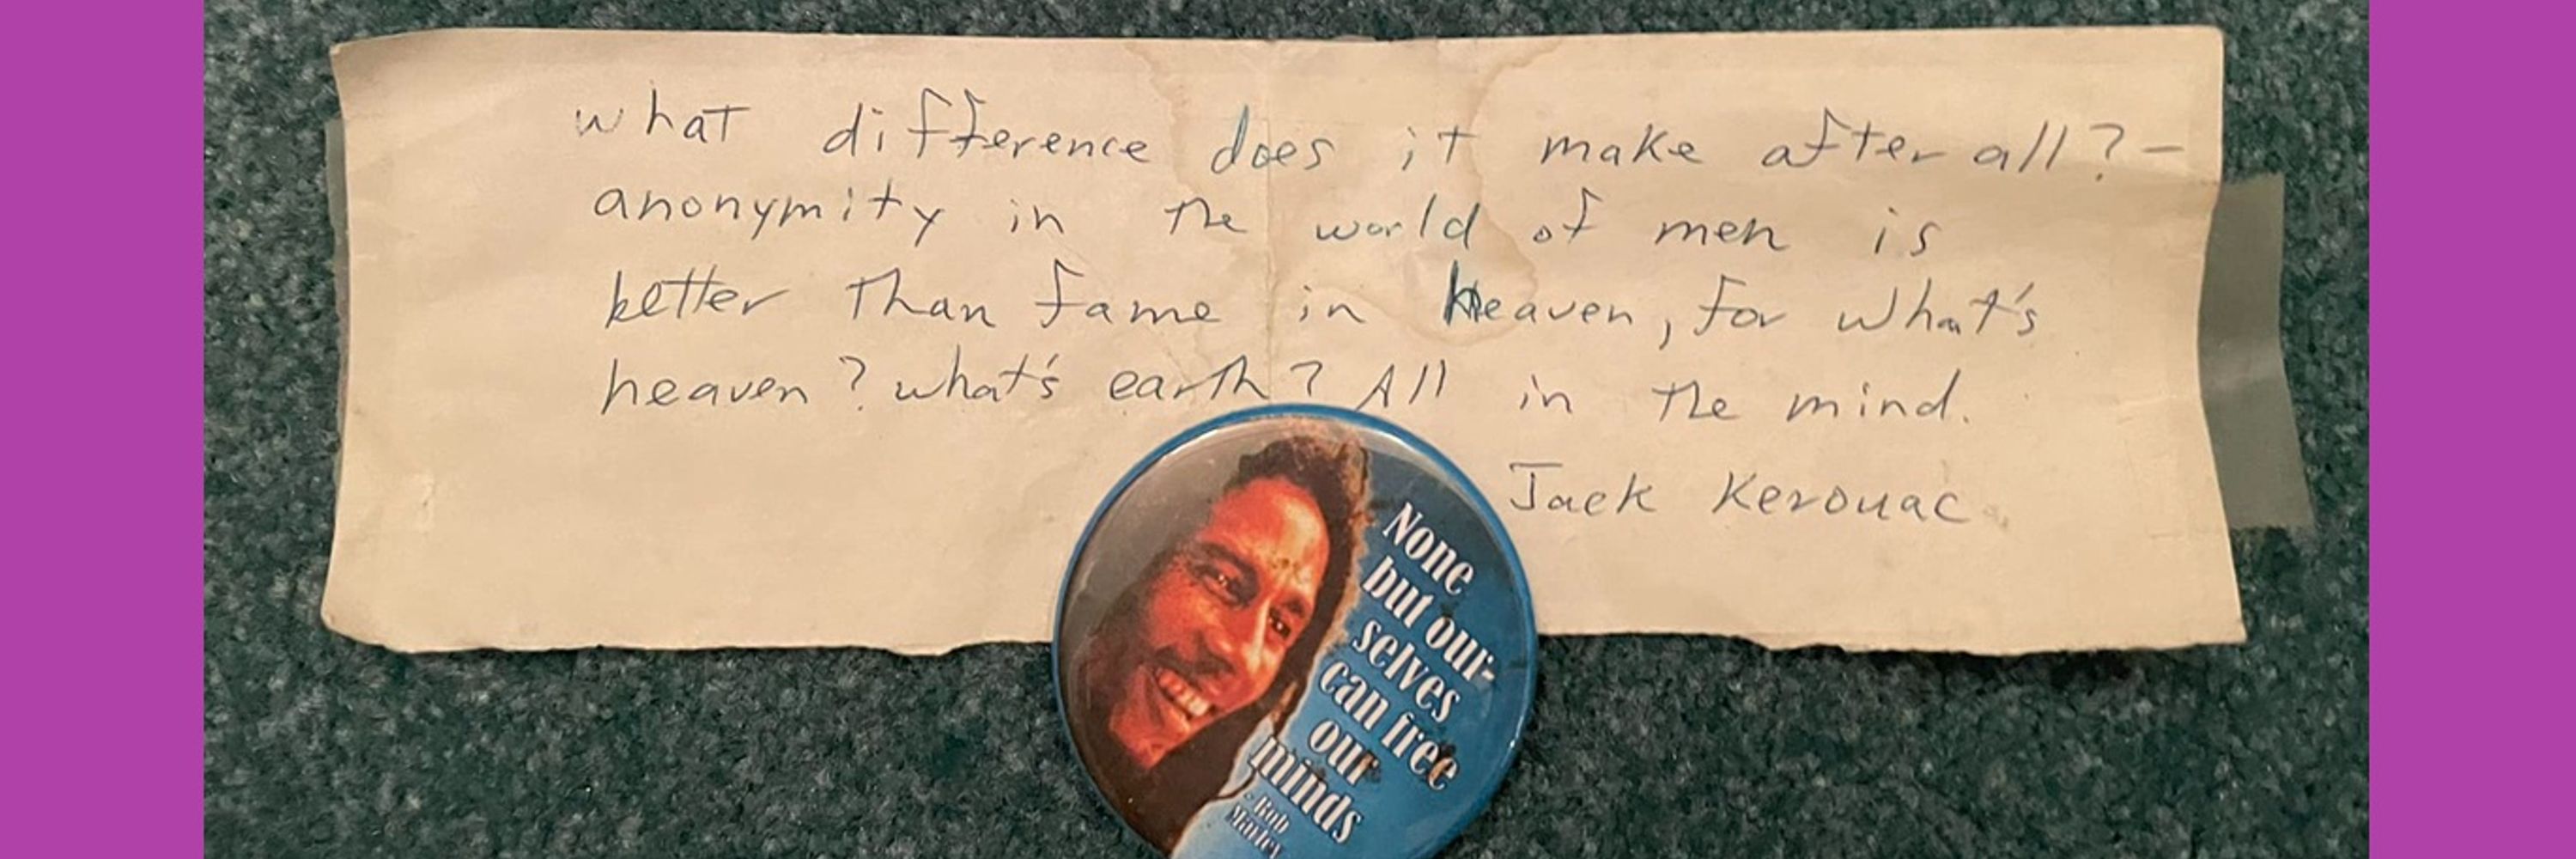 what difference does it make after all? -
anonymity in the world of men is
better than fame in heaven, for what's
heaven? what's earth? All in the mind.
Jack Kerouac
None
but our-
selves
can free
our
minds
- Bob
Marley